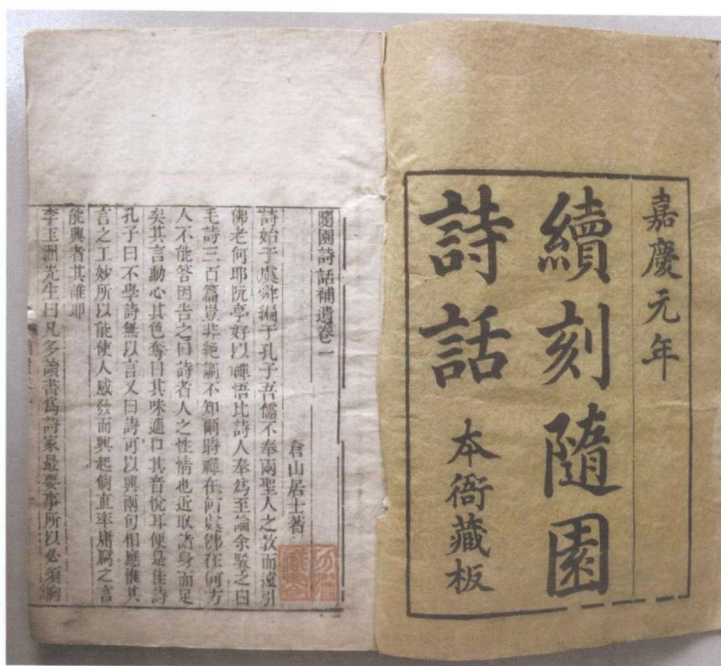 嘉慶元年
續刻隨園
詩話 本衙藏板
隨園詩話補遺卷一
倉山居士著
詩始于虞舜編于孔子吾儒不奉兩聖人之教而遠引
佛老何耶阮亭好以禪悟比詩人奉爲至論余駁之曰
毛詩三百篇豈非絕調不知爾時禪在何處佛在何方
人不能答因告之曰詩者人之性情也近取諸身而足
矣其言動心其色奪目其味適口其音悅耳便是佳詩
孔子曰不學詩無以言又曰詩可以興兩句相應惟其
言之工妙所以能使人感發而興起倘直率庸腐之言
能興者其誰耶
李玉洲先生曰凡多讀書爲詩家最要事所以必須胸